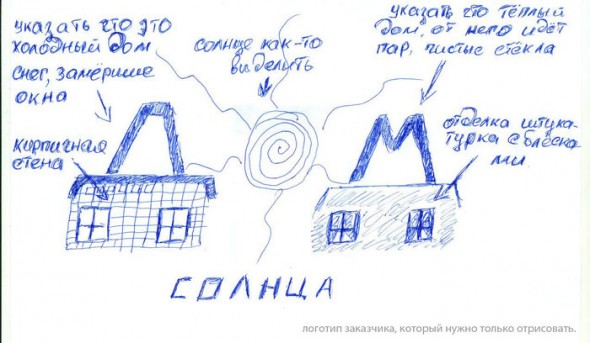 указать что это
холодный дом
снег, замёрзшие
окна
солнце как-то
выделить
указать что тёплый
дом, от него идёт
пар, чистые стёкла
кирпичная
стена
отделка штука-
турка с блёска-
ми.
Д
М
СОЛНЦА
логотип заказчика, который нужно только отрисовать.